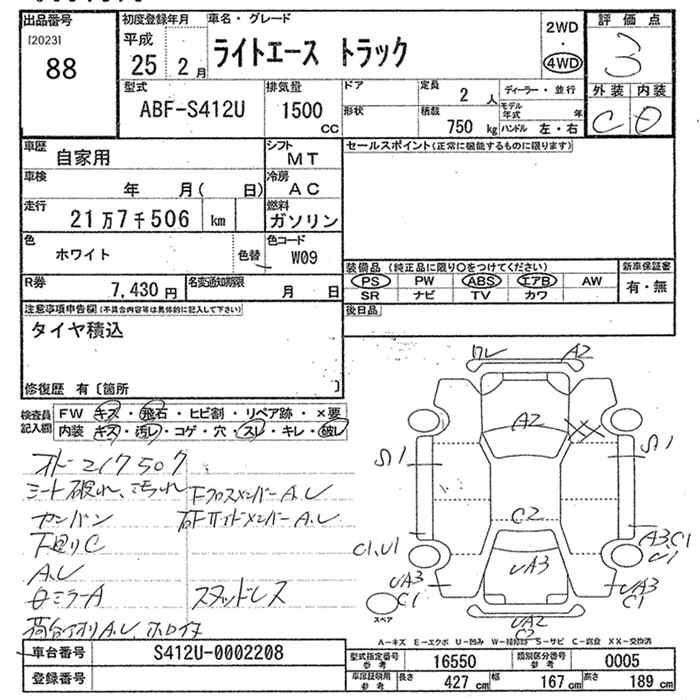 出品番号
[2023]
88
初度登録年月
平成
25 2月
車名・グレード
ライトエース トラック
2WD
・
4WD
評価点
3
外装 内装
C D
型式
ABF-S412U
排気量
1500
cc
ドア
定員
2 人
ディーラー・並行
形状
積載
750 kg
モデル年式 年
ハンドル 左・右
車歴
自家用
シフト
MT
セールスポイント(正常に機能するものに限ります)
車検
年 月( 日)
冷房
AC
走行
21万7千506 km
燃料
ガソリン
色
ホワイト
色替
色コード
W09
装備品 (純正品に限り〇をつけてください)
新車保証書
PS PW ABS エアB AW
有・無
SR ナビ TV カワ
R券
7,430 円
名変通知期限
月 日
後日品
注意事項申告欄(不具合内容等は具体的に記入して下さい)
タイヤ積込
修復歴 有〔箇所 〕
検査員
記入欄
FW キズ・飛石・ヒビ割・リペア跡・×要
内装 キズ・汚レ・コゲ・穴・スレ・キレ・破レ
オドー217507
シート破れ、汚れ
FクロスメンバーA.U
カンバン
右FサイドメンバーA.U
下廻りC
A.U
ミラーA
スタッドレス
荷台アオリA.U、
ワレ
A2
A2
XX
C1,U1
C2
A3,C1
U1
UA3
C1
UA3
UA3
C1
スペア
UA2
C2
A-キズ E-エクボ U-凹み W-補修跡 S-サビ C-腐食 XX-交換済
車台番号
S412U-0002208
型式指定番号
参考
16550
類別区分番号
参考
0005
登録番号
車庫証明用
参考
長さ 427 cm
幅 167 cm
高さ 189 cm